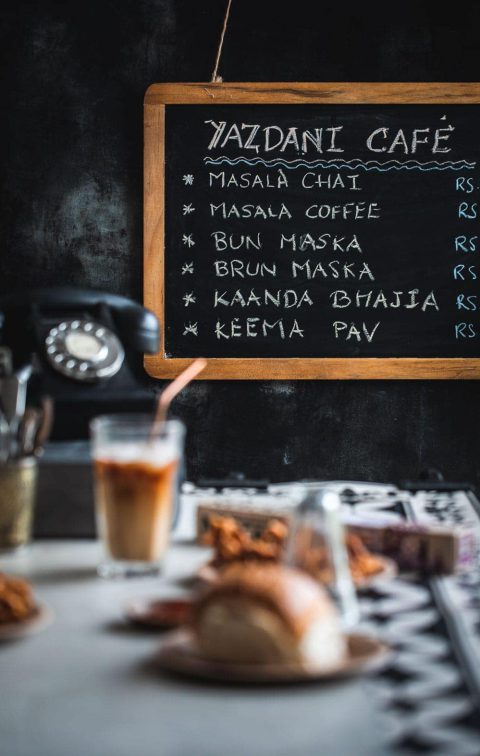 YAZDANI CAFÉ
* MASALA CHAI RS.
* MASALA COFFEE RS
* BUN MASKA RS
* BRUN MASKA RS
* KAANDA BHAJIA RS
* KEEMA PAV RS